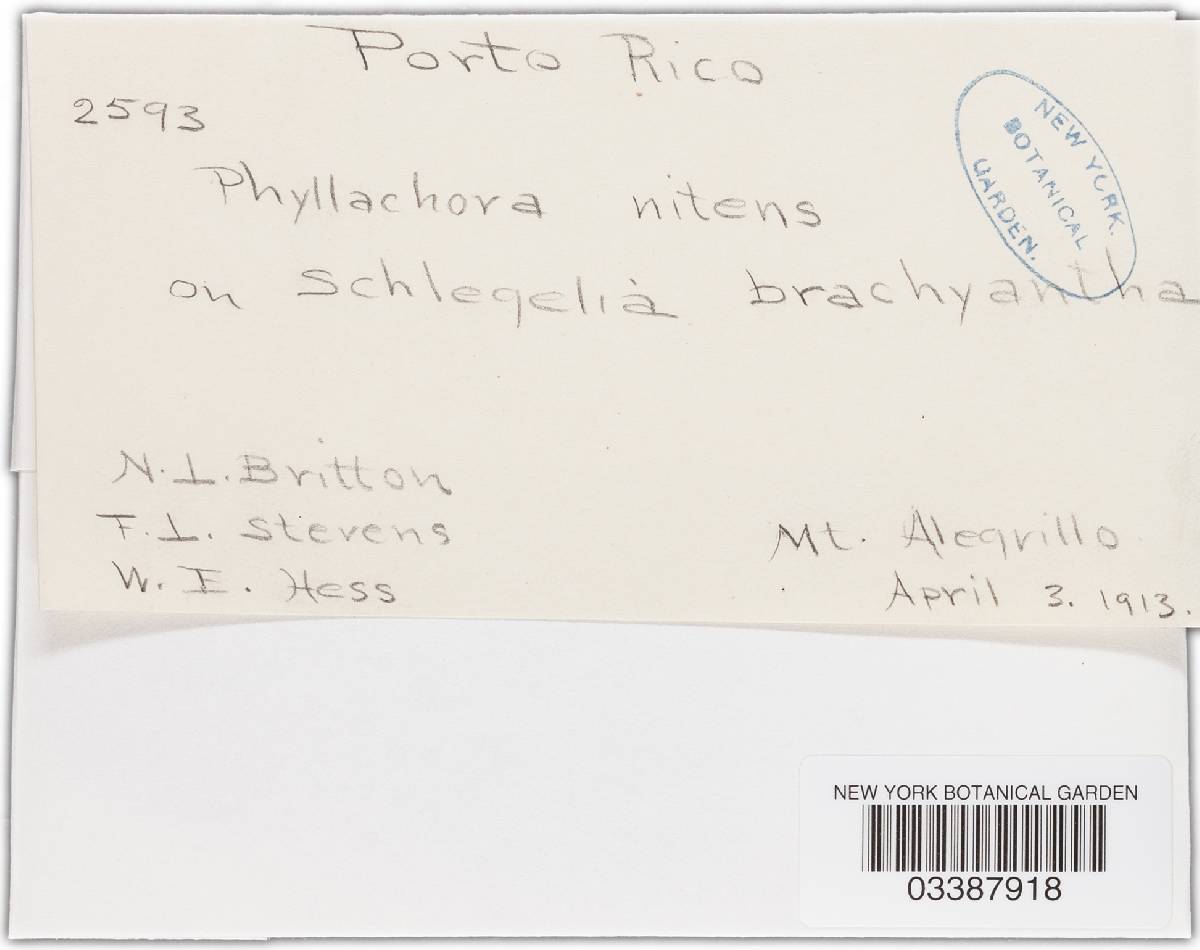 Porto Rico
2593
NEW YORK.
BOTANICAL
GARDEN.
Phyllachora nitens
on Schlegelia brachyantha
N. L. Britton
F. L. Stevens
W. E. Hess
Mt. Alegrillo
April 3. 1913.
NEW YORK BOTANICAL GARDEN
03387918